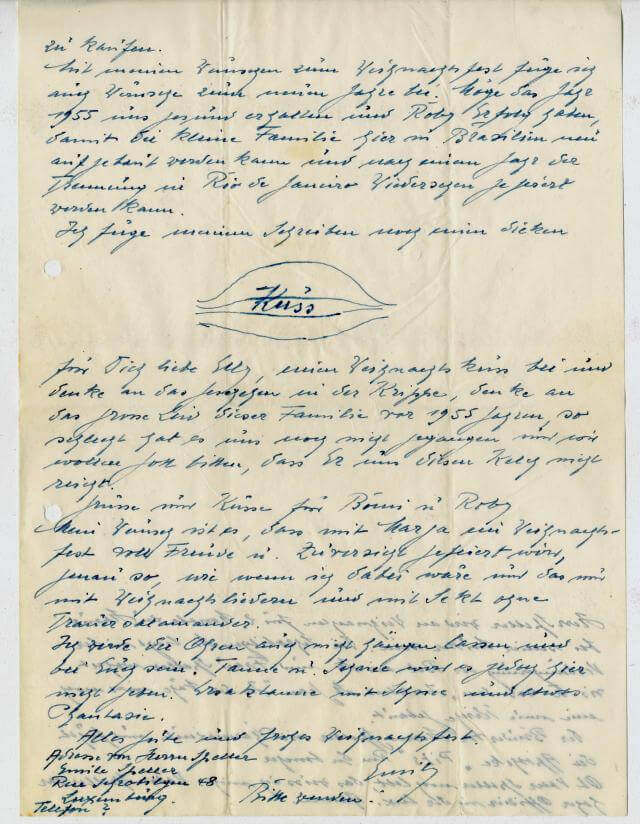 zu kaufen.
Mit meinen Wünschen zum Weihnachtsfest füge ich
auch Wünsche zum neuen Jahre bei. Möge das Jahr
1955 uns gesund erhalten und Roby Erfolg haben,
damit die kleine Familie hier in Brasilien neu
aufgebaut werden kann und nach einem Jahr der
Trennung in Rio de Janeiro Wiedersehen gefeiert
werden kann.
Ich füge meinem Schreiben noch einen dicken
Kuss
für Dich liebe Elly, einen Weihnachtskuss bei und
denke an das Jesulein in der Krippe, denke an
das grosse Leid dieser Familie vor 1955 Jahren, so
schlecht hat es uns noch nicht gegangen und wir
wollen Gott bitten, dass Er uns diesen Kelch nicht
reicht.
Grüsse und Küsse für Bomi u Roby
Mein Wunsch ist es, dass mit Marja ein Weihnachts-
fest voll Freude u. Zuversicht gefeiert wird,
genau so, wie wenn ich dabei wäre und das nur
mit Weihnachtsliedern und mit Sekt ohne
Trauersalamander.
Ich werde die Ohren auch nicht hängen lassen und
bei Euch sein. Tanne u. Schnee wird es jedoch hier
nicht geben. Ersatztanne mit Schnee und etwas
Phantasie.
Alles Gute und frohes Weihnachtsfest.
Adresse von Herrn Speller
Emile Speller
Emil
Rue 48
Luxemburg.
Bitte wenden!
Telefon ?